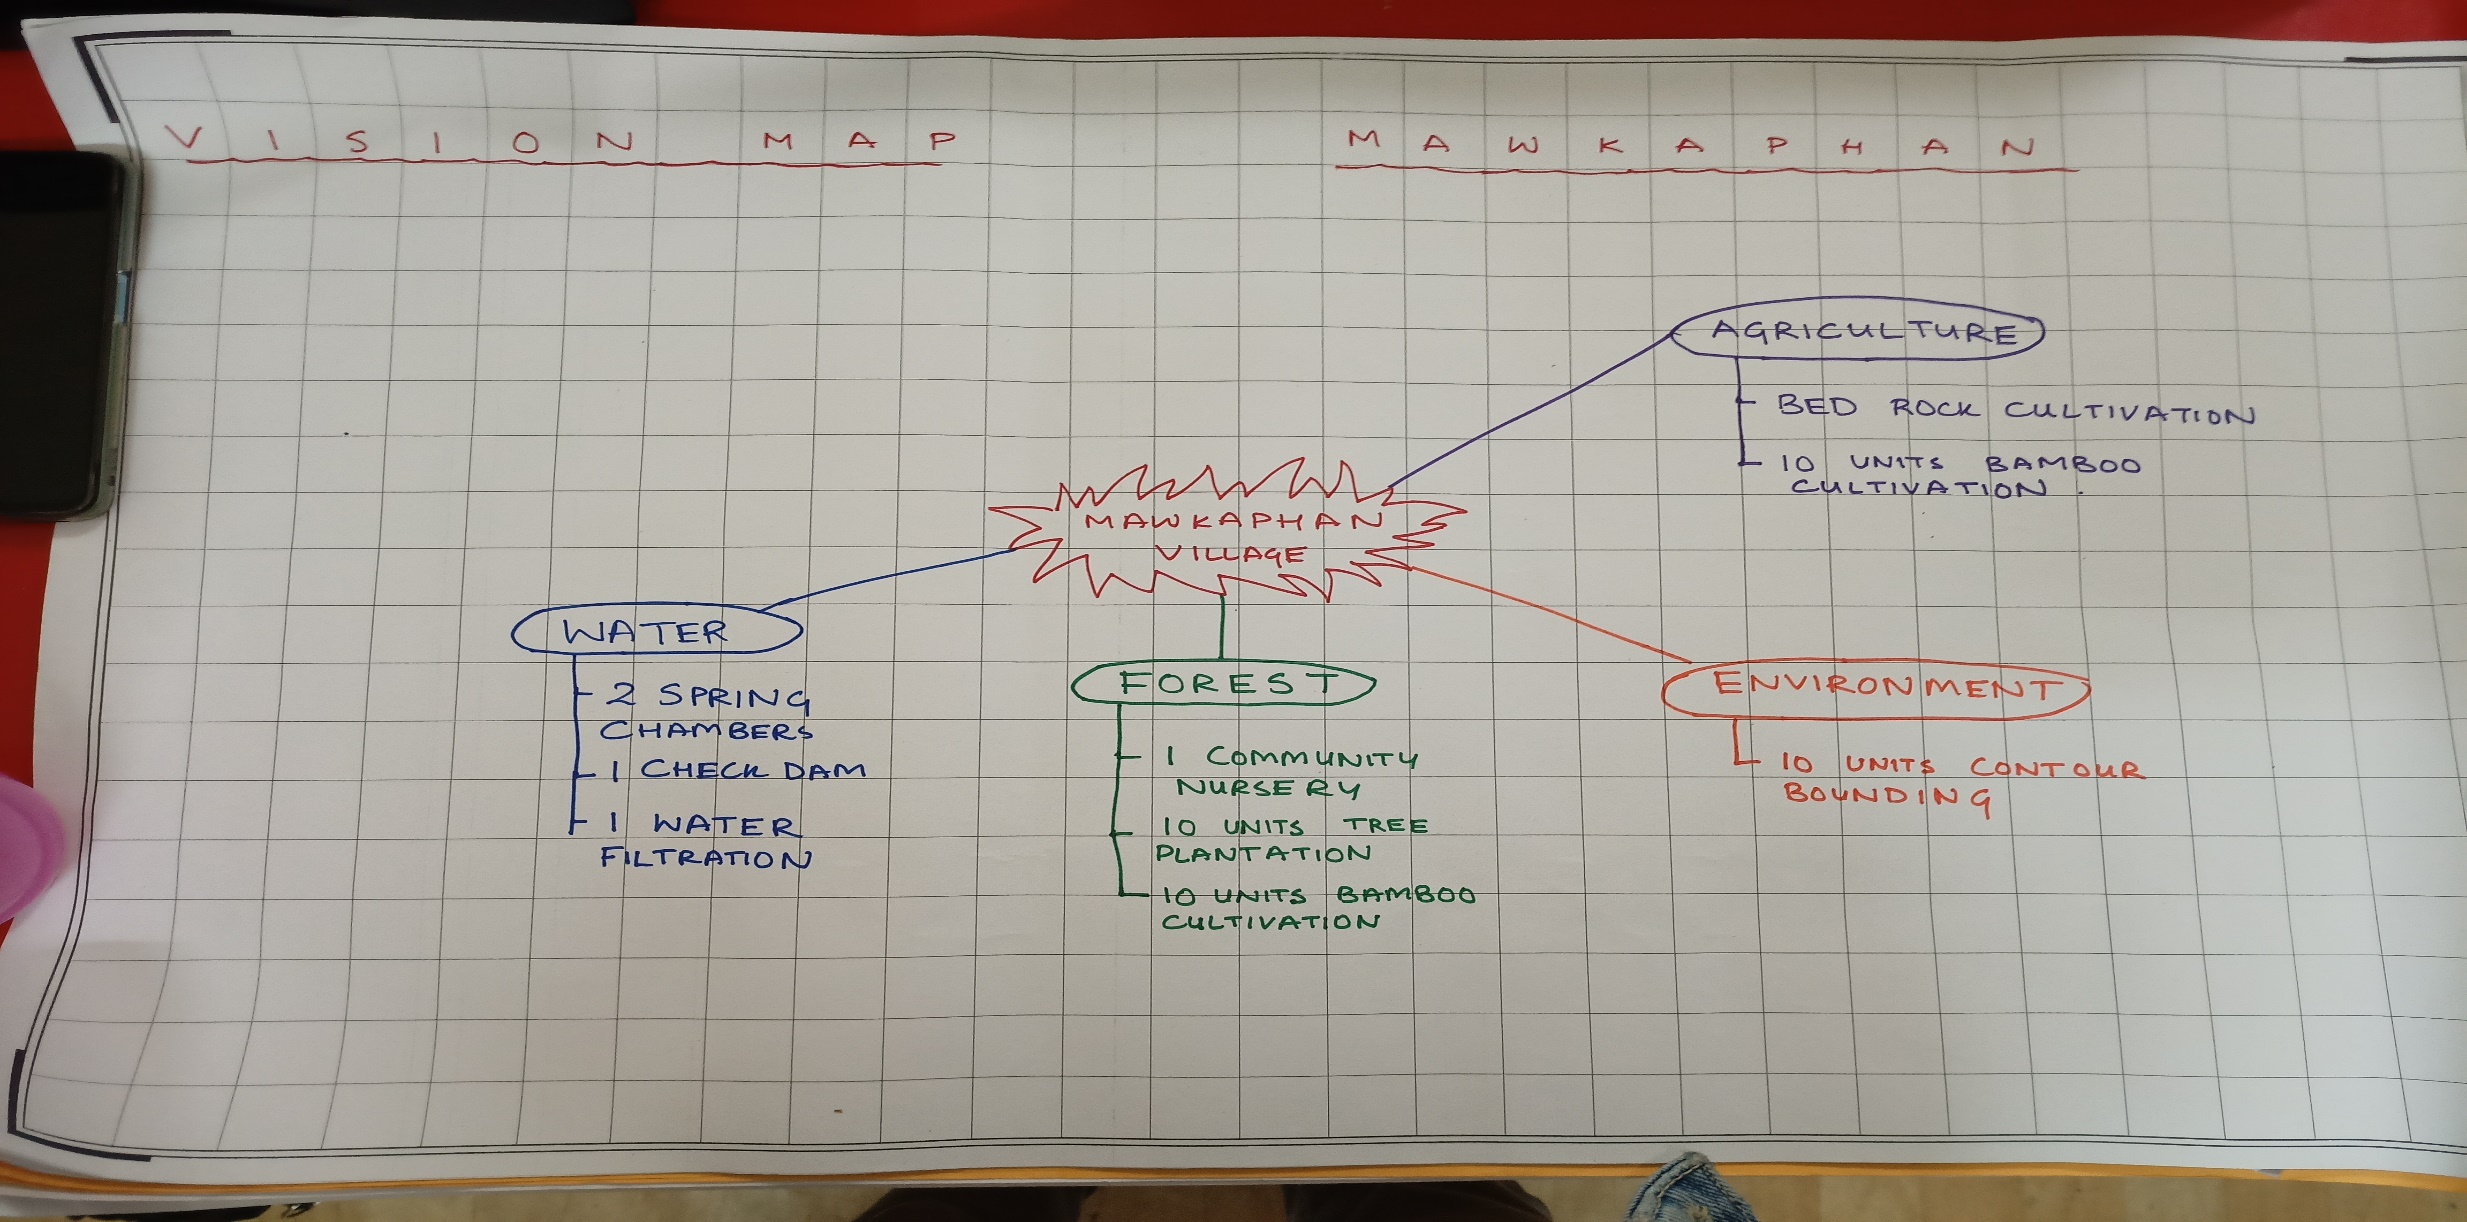 VISION MAP MAWKAPHAN
AGRICULTURE
BED ROCK CULTIVATION
10 UNITS BAMBOO
CULTIVATION.
MAWKAPHAN
VILLAGE
WATER
2 SPRING
CHAMBERS
1 CHECK DAM
1 WATER
FILTRATION
FOREST
1 COMMUNITY
NURSERY
10 UNITS TREE
PLANTATION
10 UNITS BAMBOO
CULTIVATION
ENVIRONMENT
10 UNITS CONTOUR
BOUNDING